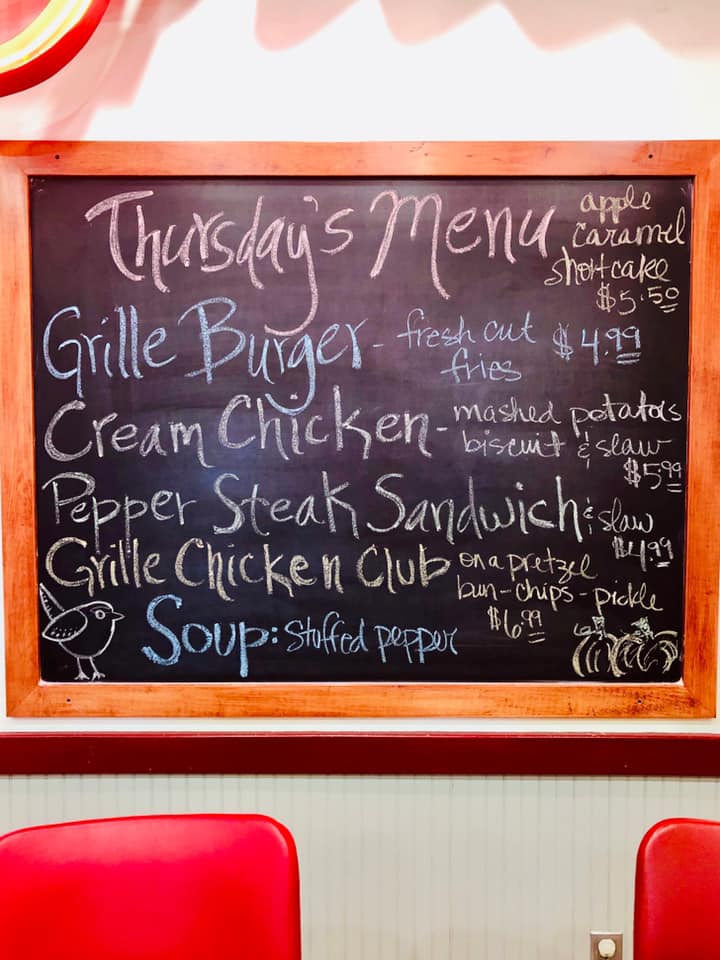 Thursday's Menu
apple
caramel
shortcake
$5.50
Grille Burger - fresh cut fries $4.99
Cream Chicken - mashed potatoes
biscuit & slaw
$5.99
Pepper Steak Sandwich & slaw
$4.99
Grille Chicken Club on a pretzel
bun - chips - pickle
$6.99
Soup: Stuffed pepper